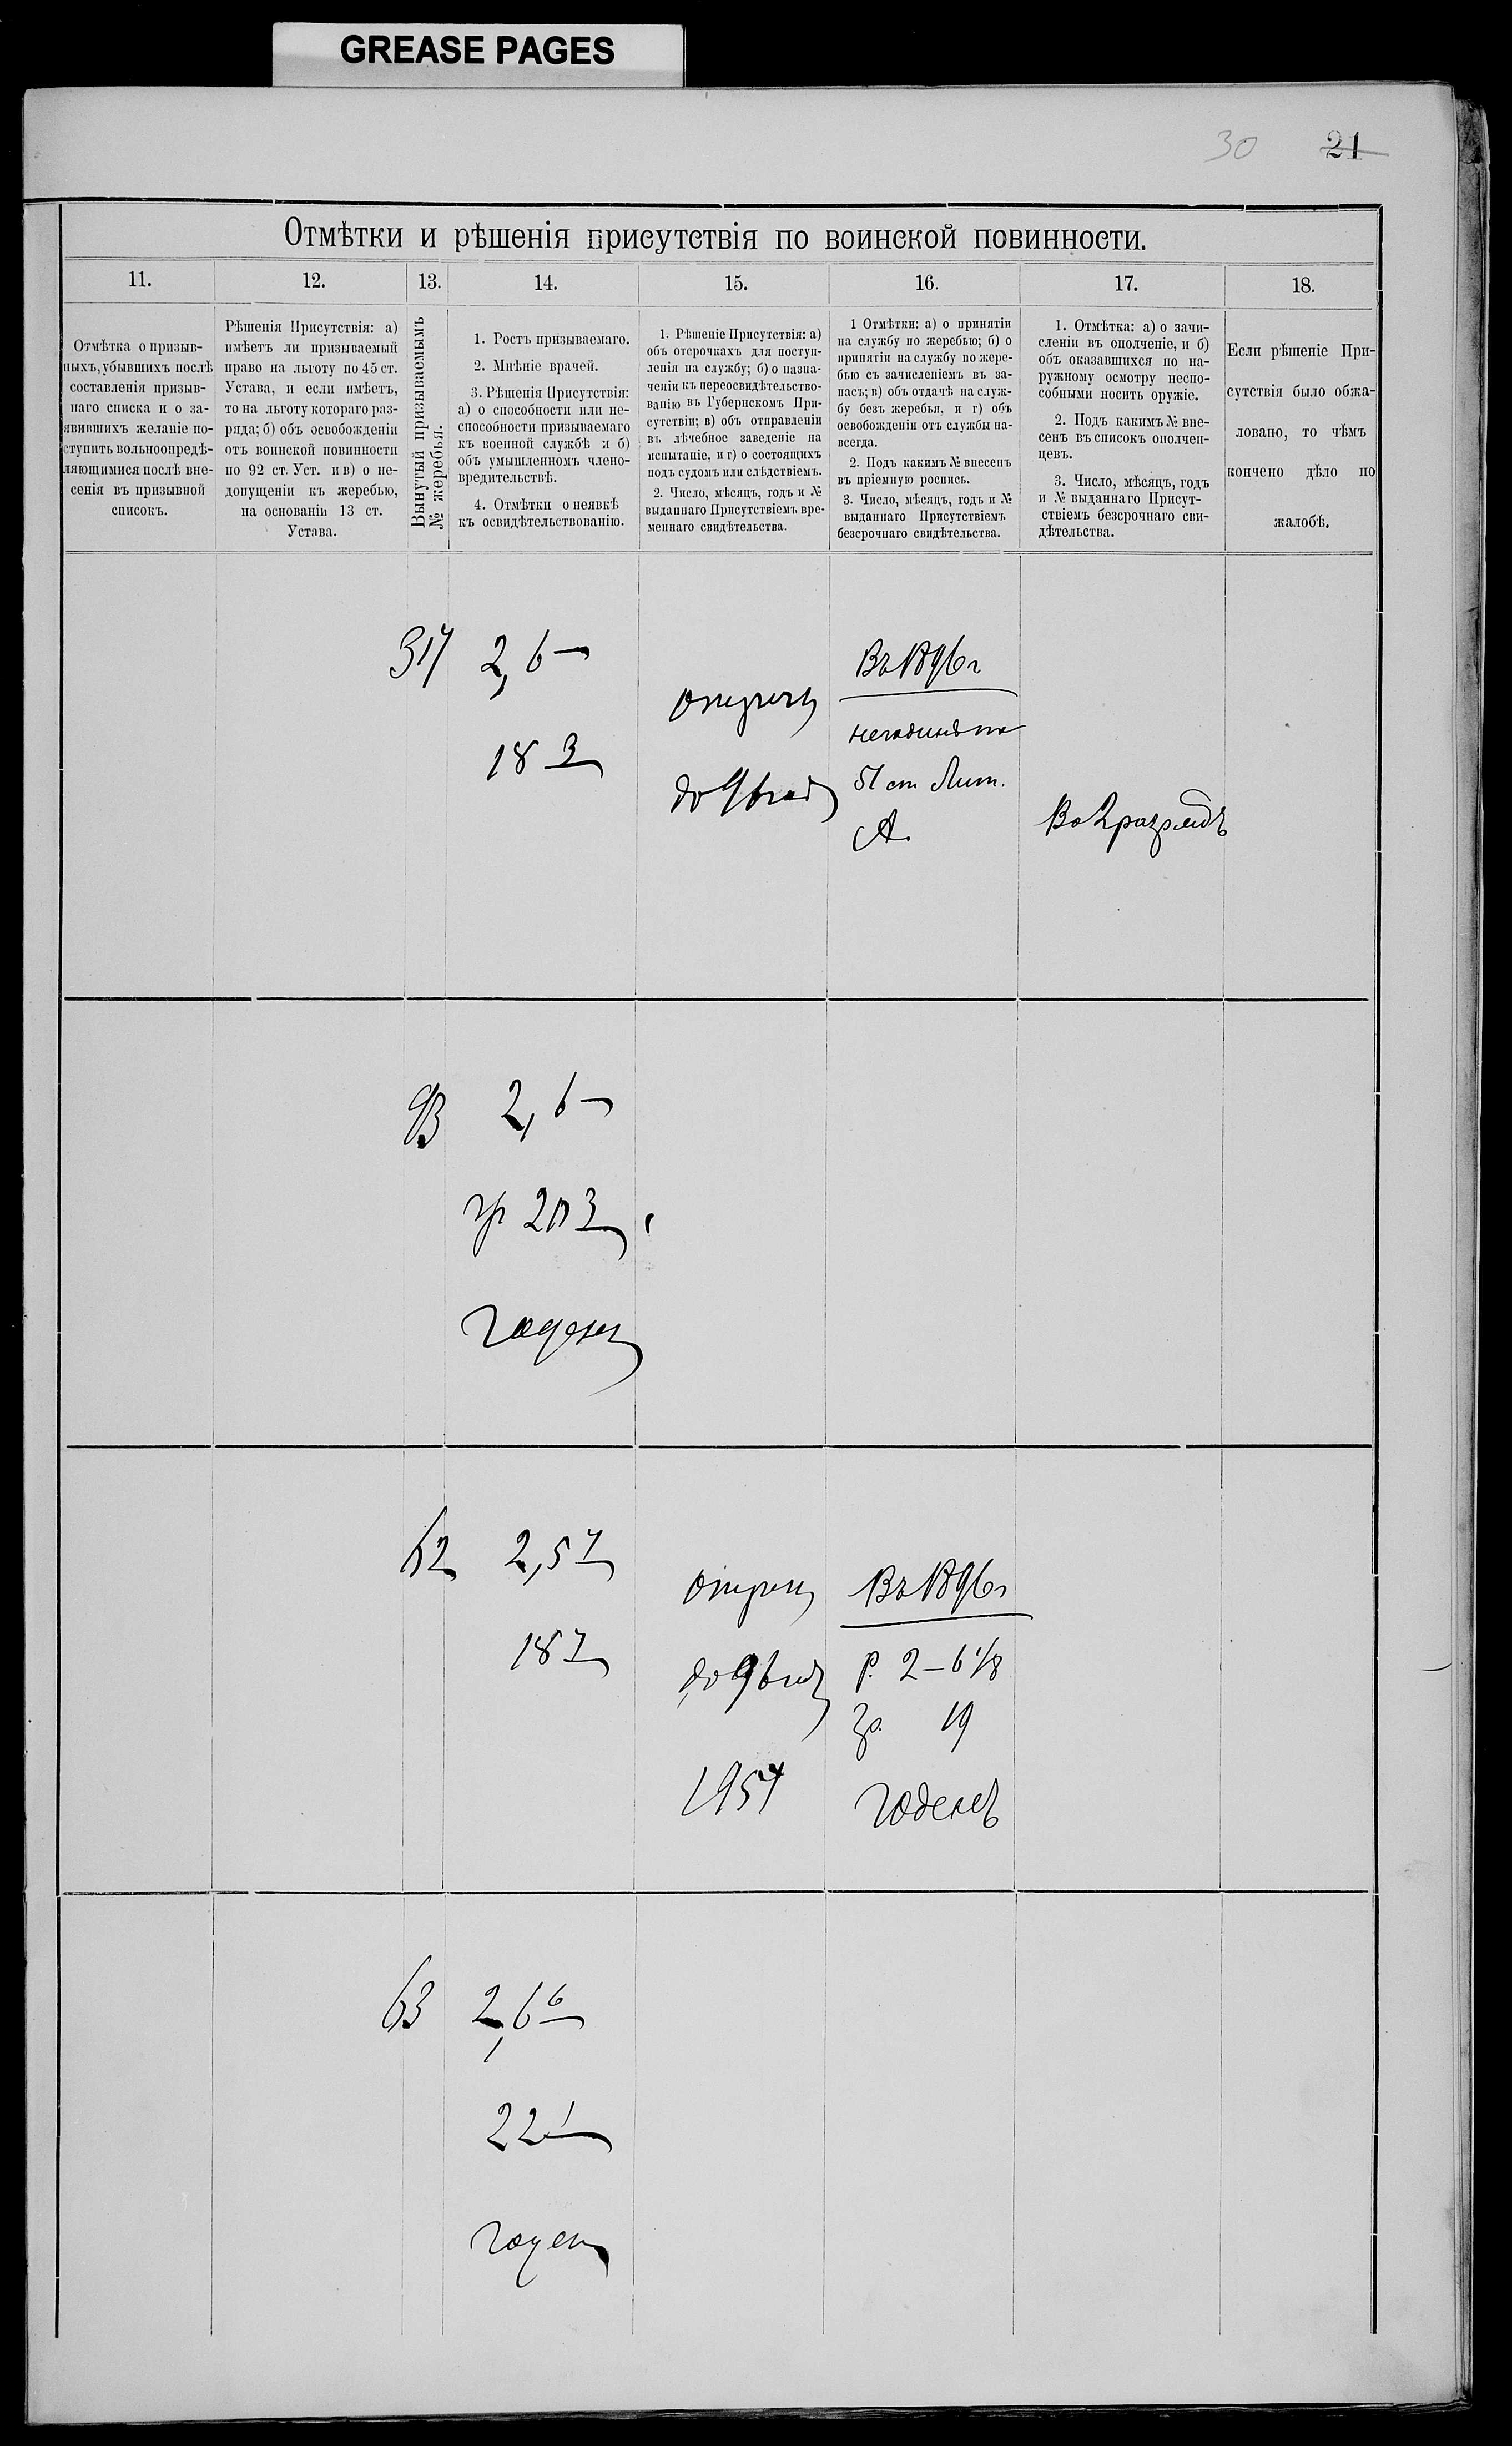 GREASE PAGES
30 21
Отмѣтки и рѣшенія присутствія по воинской повинности.
11.
12.
13.
14.
15.
16.
17.
18.
Отмѣтка о призыв-
ныхъ, убывшихъ послѣ
составленія призыв-
наго списка и о за-
явившихъ желаніе по-
ступить вольноопредѣ-
ляющимися послѣ вне-
сенія въ призывной
списокъ.
Рѣшенія Присутствія: а)
имѣетъ ли призываемый
право на льготу по 45 ст.
Устава, и если имѣетъ,
то на льготу котораго раз-
ряда; б) объ освобожденіи
отъ воинской повинности
по 92 ст. Уст. и в) о не-
допущеніи къ жеребью,
на основаніи 13 ст.
Устава.
Вынутый призываемымъ
№ жеребья.
1. Ростъ призываемаго.
2. Мнѣніе врачей.
3. Рѣшенія Присутствія:
а) о способности или не-
способности призываемаго
къ военной службѣ и б)
объ умышленномъ члено-
вредительствѣ.
4. Отмѣтки о неявкѣ
къ освидѣтельствованію.
1. Рѣшеніе Присутствія: а)
объ отсрочкахъ для поступ-
ленія на службу; б) о назна-
ченіи къ переосвидѣтельство-
ванію въ Губернскомъ При-
сутствіи; в) объ отправленіи
въ лѣчебное заведеніе на
испытаніе, и г) о состоящихъ
подъ судомъ или слѣдствіемъ.
2. Число, мѣсяцъ, годъ и №
выданнаго Присутствіемъ вре-
меннаго свидѣтельства.
1 Отмѣтки: а) о принятіи
на службу по жеребью; б) о
принятіи на службу по жере-
бью съ зачисленіемъ въ за-
пасъ; в) объ отдачѣ на служ-
бу безъ жеребья, и г) объ
освобожденіи отъ службы на-
всегда.
2. Подъ какимъ № внесенъ
въ пріемную роспись.
3. Число, мѣсяцъ, годъ и №
выданнаго Присутствіемъ
безсрочнаго свидѣтельства.
1. Отмѣтка: а) о зачи-
сленіи въ ополченіе, и б)
объ оказавшихся по на-
ружному осмотру неспо-
собными носить оружіе.
2. Подъ какимъ № вне-
сенъ въ списокъ ополчен-
цевъ.
3. Число, мѣсяцъ, годъ
и № выданнаго Присут-
ствіемъ безсрочнаго сви-
дѣтельства.
Если рѣшеніе При-
сутствія было обжа-
ловано, то чѣмъ
кончено дѣло по
жалобѣ.
317
2,6
18 3
до 96 года
Въ 1896 г
негоднымъ по
51 ст Лит.
А.
Во 2 разрядъ
93
2,6
гр 20 3
годенъ
62
2,5 7
18 7
до 96 года
1957
Въ 1896 г
Р. 2–6 1/8
гр. 19
Годенъ
63
2,6 6
22 1
годен